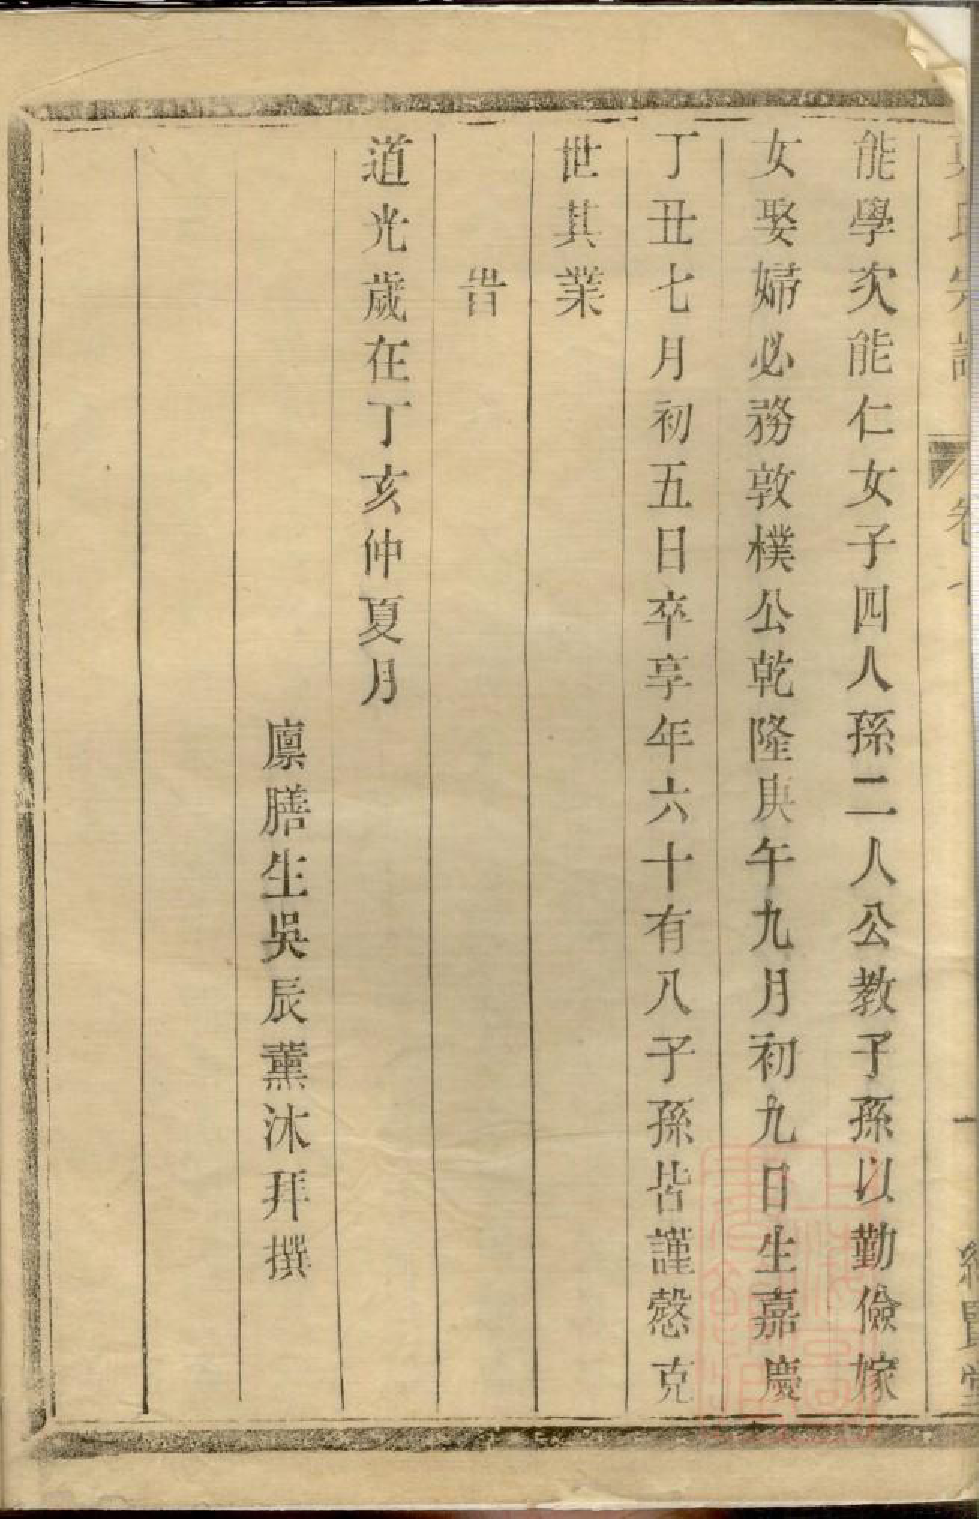 氏宗譜 卷 一 繩賢堂
能學次能仁女子四人孫二人公教子孫以勤儉嫁
女娶婦必務敦樸公乾隆庚午九月初九日生嘉慶
丁丑七月初五日卒享年六十有八子孫皆謹愨克
世其業
旹
道光歲在丁亥仲夏月
廩膳生吳辰薰沐拜撰